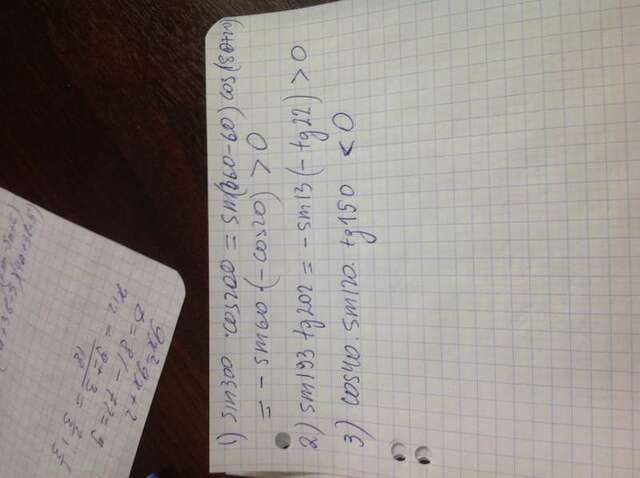 1) sin300 · cos200 = sin(360-60) cos(180+20)
= - sin60 · (- cos20) > 0
2) sin193 · tg202 = - sin13 (- tg22) > 0
3) cos40 · sin120 · tg150 < 0
9x² 9x+2
D = 81 - 72 = 9